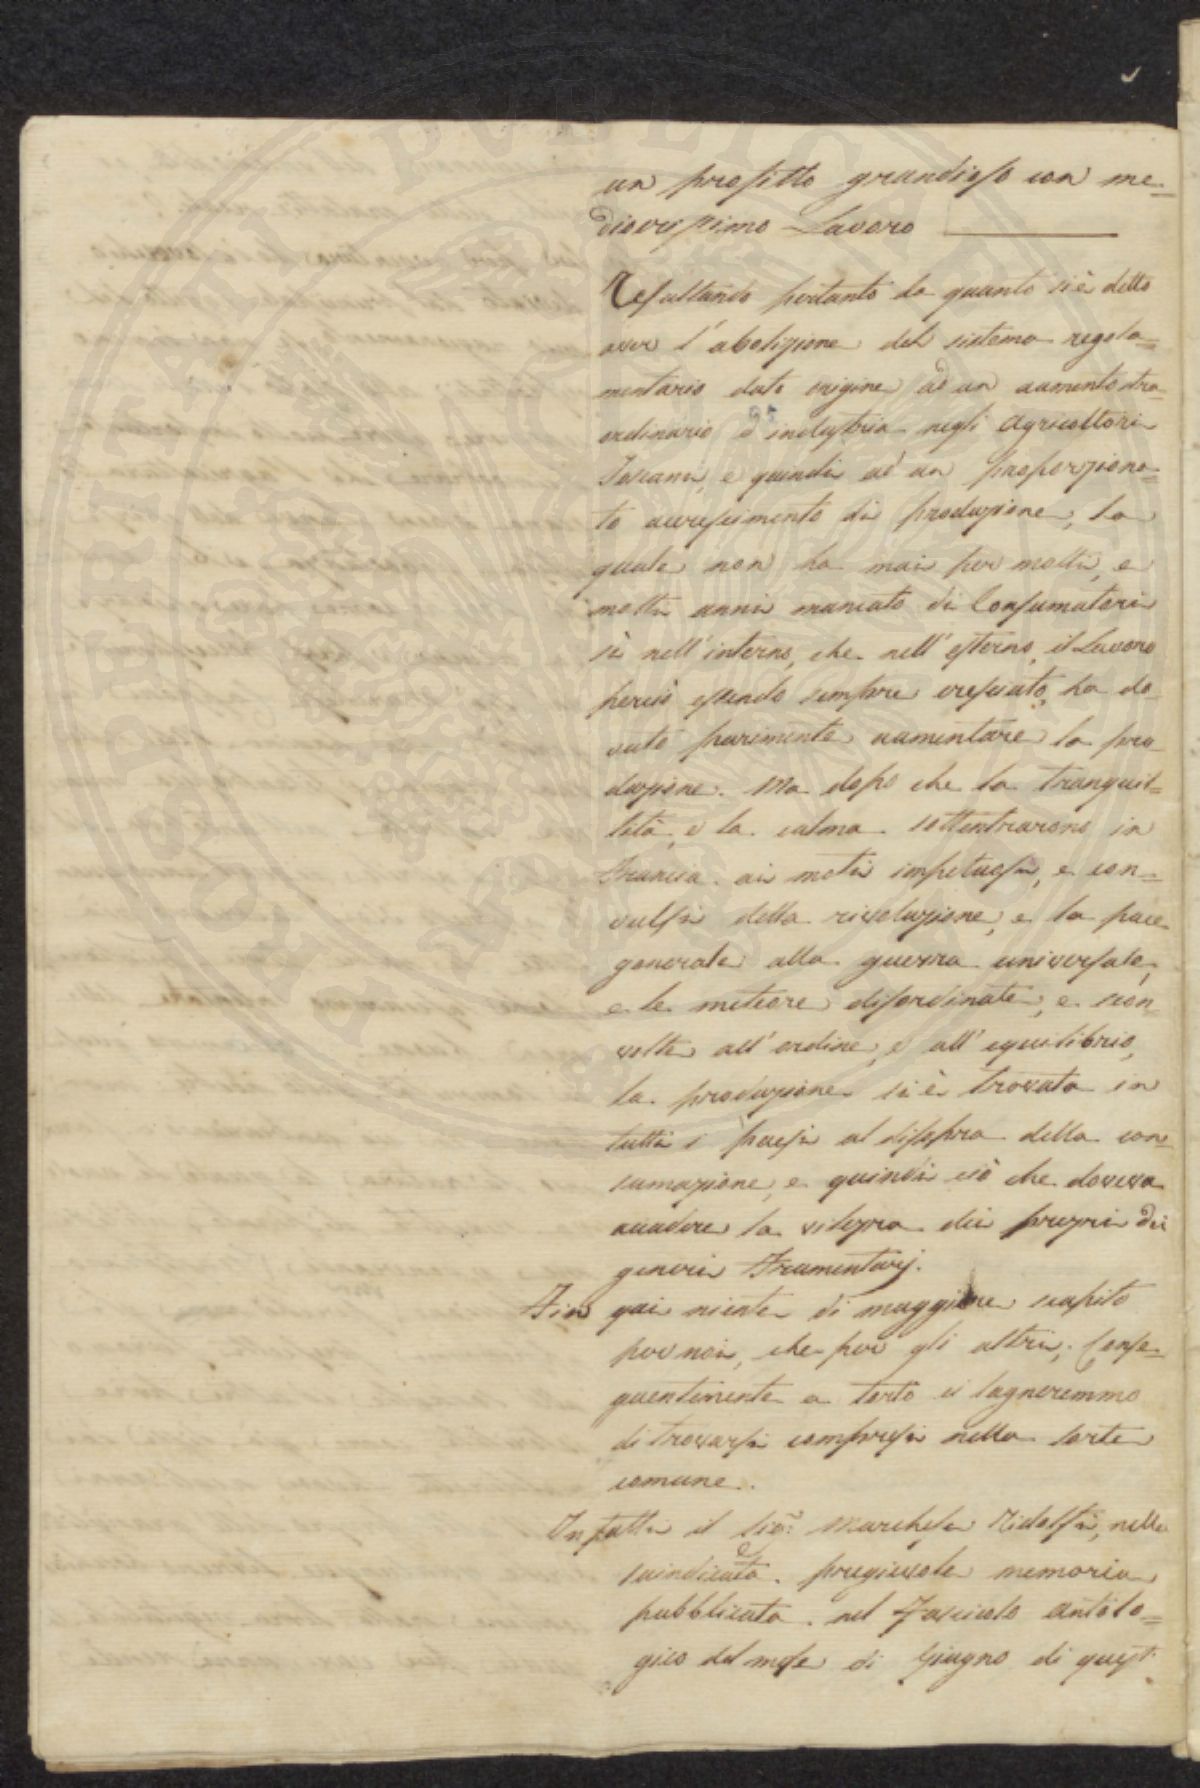 un profitto grandioso con me=
diocrissimo Lavoro
Resultando pertanto da quanto si è detto
aver l'abolizione del sistema regola=
mentario dato origine ad un aumento stra=
ordinario d'industria negli Agricoltori
Toscani, e quindi ad un proporziona=
to accrescimento di produzione, la
quale non ha mai per molti, e
molti anni mancato di Consumatori
sì nell'interno, che nell'esterno, il Lavoro
perciò essendo sempre cresciuto, ha do=
vuto parimente aumentare la pro=
duzione. Ma dopo che la tranquil=
lità, e la calma sottentrarono in
Francia ai moti impetuosi, e con=
vulsi della rivoluzione, e la pace
generale alla guerra universale,
e le meteore disordinate, e scon=
volte all'ordine, e all'equilibrio,
la produzione si è trovata in
tutti i paesi al disopra della con=
sumazione, e quindi ciò che doveva
accadere la vilezza dei prezzi dei
generi Frumentarj.
Fin qui niente di maggiore scapito
per noi, che per gli altri; Conse=
guentemente a torto ci lagneremmo
di trovarsi compresi nella sorte
comune.
Infatti il Sig.r Marchese Ridolfi, nella
suindicata pregievole memoria
pubblicata nel Fascicolo Antolo=
gico del mese di Giugno di quest'
PUBLICA